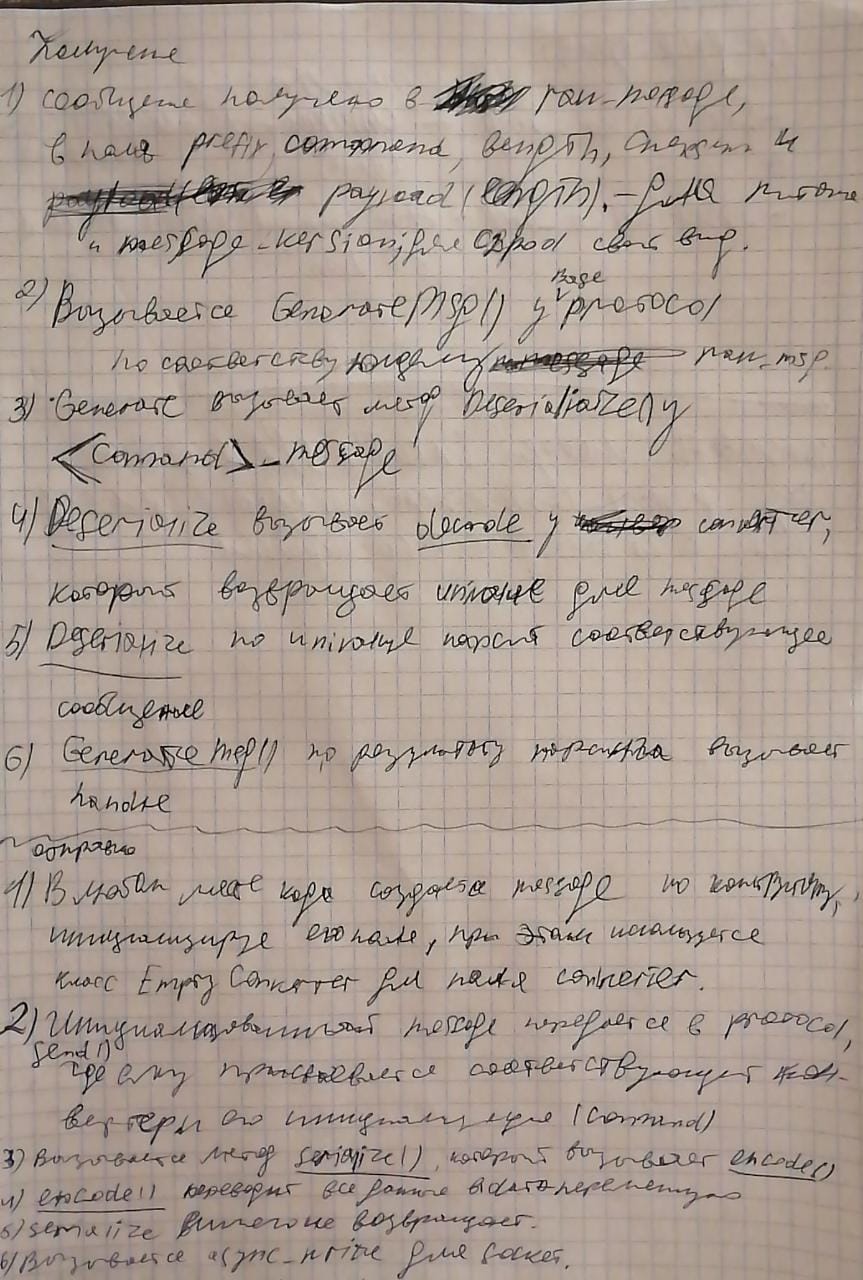 Получение
1) сообщение получено в raw_message,
в поля prefix, command, length, checksum и
payload (length), – для питона
и message_version, для свой вид.
2) Вызывается GenerateMsg() у Base protocol
по соответствующему raw_msg.
3) Generate вызывает метод Deserialize() у
<Command>_message
4) Deserialize вызывает decode у converter,
который возвращает для message
5) Deserialize по парсит соответствующее
сообщение
6) GenerateMsg() по результату парсинга вызывает
handle
отправка
1) В любом месте кода создается message по конструктору,
инициализируя его поля, при этом используется
класс Empty Converter для поля converter.
2) Инициализированный message передается в protocol,
send()
где ему присваивается соответствующий кон-
вертер и его инициализация (command)
3) Вызывается метод serialize(), который вызывает encode()
4) encode() переводит все данные в data переменную
5) serialize возвращает.
6) Вызывается async_write для socket.